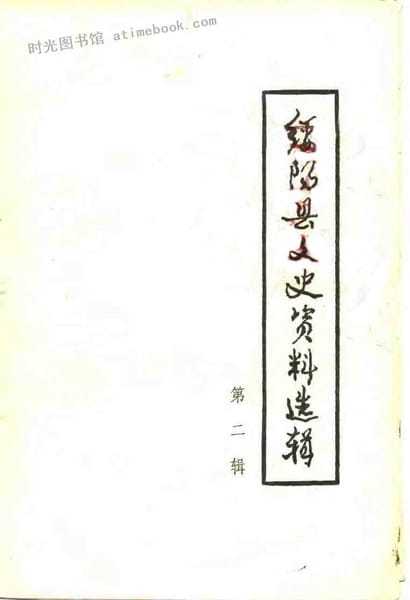 时光图书馆 atimebook.com
绥阳县文史资料选辑
第二辑